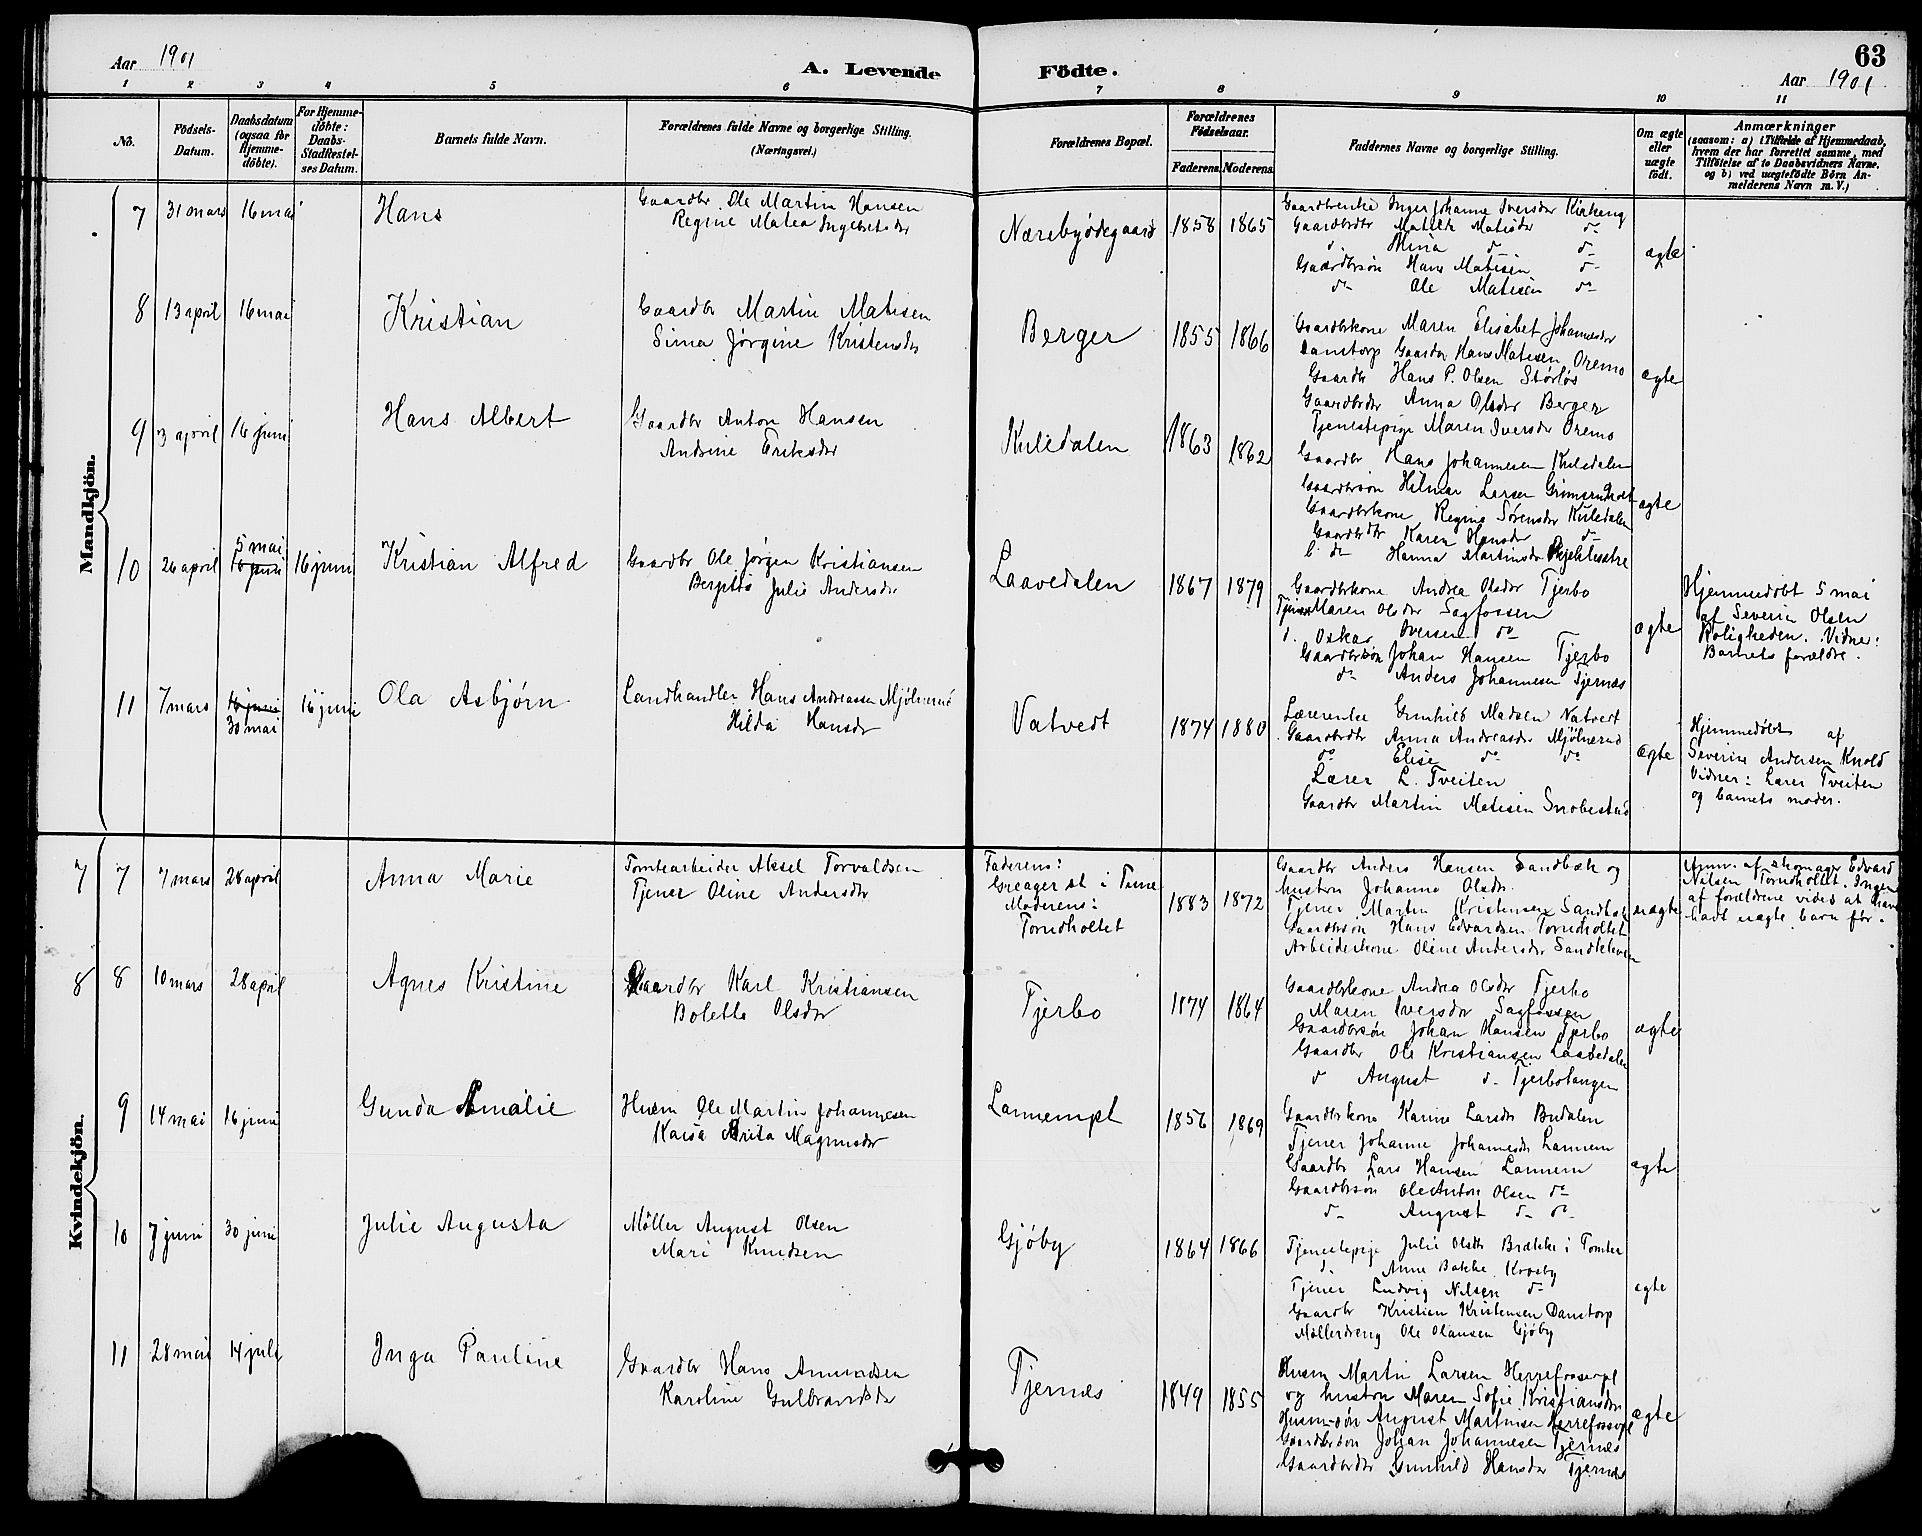 Aar 1901
A. Levende Födte.
63
Aar 1901
1 2 3 4 5 6 7 8 9 10 11
No.
Födsels-Datum.
Daabsdatum (ogsaa for Hjemme-döbte).
For Hjemme-döbte: Daabs-Stadfæstel-ses Datum.
Barnets fulde Navn.
Forældrenes fulde Navne og borgerlige Stilling.
(Næringsvei.)
Forældrenes Bopæl.
Forældrenes Födselsaar.
Faderens. Moderens.
Faddernes Navne og borgerlige Stilling.
Om ægte eller uægte födt.
Anmærkninger
(saasom: a) i Tilfælde af Hjemmedaab, hvem der har forrettet samme, med Tilföielse af to Daabsvidners Navne. og b) ved uægtefödte Börn An-melderens Navn m. V.)
Mandkjön.
7 31 mars 16 mai Hans
Gaardbr Ole Martin Hansen
Regine Matea Ingebretsdr
Nærebyødegaard 1858 1865
Gaardbrenke Inger Johanne Iversdr Kirkeng
Gaardbrdtr Matilde Matisdr do
d. Mina do do
Gaardbrsön Hans Matisen do
do Ole Matisen do
ægte
8 13 april 16 mai Kristian
Gaardbr Martin Matisen
Sina Jørgine Kristensdr
Berger 1855 1866
Gaardbrkone Maren Elisabet Johannesdr
Danstorp Gaardbr Hans Matisen Oremo
Gaardbr Hans P. Olsen Størløs
Gaardbrdtr Anna Olsdr Berger
Tjenestepige Maren Iversdr Oremo
ægte
9 3 april 16 juni Hans Albert
Gaardbr Anton Hansen
Andrine Eriksdr
Kuledalen 1863 1862
Gaardbr Hans Johannesen Kuledalen
Gaardbrsön Hilmar Larsen
Gaardbrkone Regine Sørensdr Kuledalen
Gaardbrdtr Karen Hansdr do
do Hanna Martinsdr
ægte
10 26 april 5 mai 16 juni 16 juni Kristian Alfred
Gaardbr Ole Jørgen Kristiansen
Bergitte Julie Andersdr
Laavedalen 1867 1879
Gaardbrkone Andrea Olsdr Tjerbo
Tjener Maren Olsdr Sagfossen
d. Oskar Iversen do
Gaardbrsön Johan Hansen Tjerbo
do Anders Johannesen Tjernæs
ægte
Hjemmedøbt 5 mai
af Severin Olsen
Roligheden. Vidner:
Barnets forældre.
11 7 mars 16 juni 30 mai 16 juni Ola Asbjørn
Landhandler Hans Andreassen Mjølnerud
Hilda Hansdr
Vatvedt 1874 1880
Lærerenke Gunhild Madsen Vatvedt
Gaardbrdtr Anna Andreasdr Mjølnerud
do Elise do do
Lærer L. Tveiten
Gaardbr Martin Matisen Snobestad
ægte
Hjemmedøbt af
Severine Andersen Knold
Vidner: Lærer Tveiten
og barnets moder.
Kvindekjön.
7 7 7 mars 28 april Anna Marie
Tomtearbeider Aksel Torvaldsen
Tjener Oline Andersdtr
Faderens:
Greager st i Tune
Moderens:
Torndholtet
1883 1872
Gaardbr Anders Hansen Sandbæk og
hustru Johanne Olsdr.
Tjener Martin Kristensen Sandbæk
Gaardbrsøn Hans Edvardsen Torndholtet
Arbeiderkone Oline Andersdr Sandkleven
uægte
Anm. af skomager Edvard
Nilsen Torndholtet. Ingen
af forældrene vides at have
havt uægte barn før.
8 8 10 mars 28 april Agnes Kristine
Gaardbr Karl Kristiansen
Bolette Olsdr
Tjerbo 1874 1864
Gaardbrkone Andrea Olsdr Tjerbo
Maren Iversdr Sagfossen
Gaardbrsön Johan Hansen Tjerbo
Gaardbr Ole Kristiansen Laavedalen
d August d. Tjerbotangen
ægte
9 14 mai 16 juni Gunda Amalie
Husm Ole Martin Johannesen
Kaisa Brita Magnusdr
Lannempl 1856 1869
Gaardbrkone Karine Larsdr Budalen
Tjener Johanne Johannesdr Lannem
Gaardbr Lars Hansen Lannem
Gaardbrsön Ole Anton Olsen do
do August do do
ægte
10 7 juni 30 juni Julie Augusta
Møller August Olsen
Mari Knudsen
Gjøby 1864 1866
Tjenestepige Julie Olsdtr Brække i Tomter
d. Anne Bakke Kroby
Tjener Ludvig Nilsen do
Gaardbr Kristian Kristensen Danstorp
Møllerdreng Ole Olausen Gjøby
ægte
11 28 mai 14 juli Inga Pauline
Gaardbr Hans Amundsen
Karoline Gulbrandsdr
Tjernæs 1849 1855
Husm Martin Larsen Herrefossepl
og hustru Maren Sofie Kristiansdr
Husm-søn August Martinsen Herrefossepl
Gaardbrsön Johan Johannesen Tjernæs
Gaardbrdtr Gunhild Hansdr Tjernæs
ægte